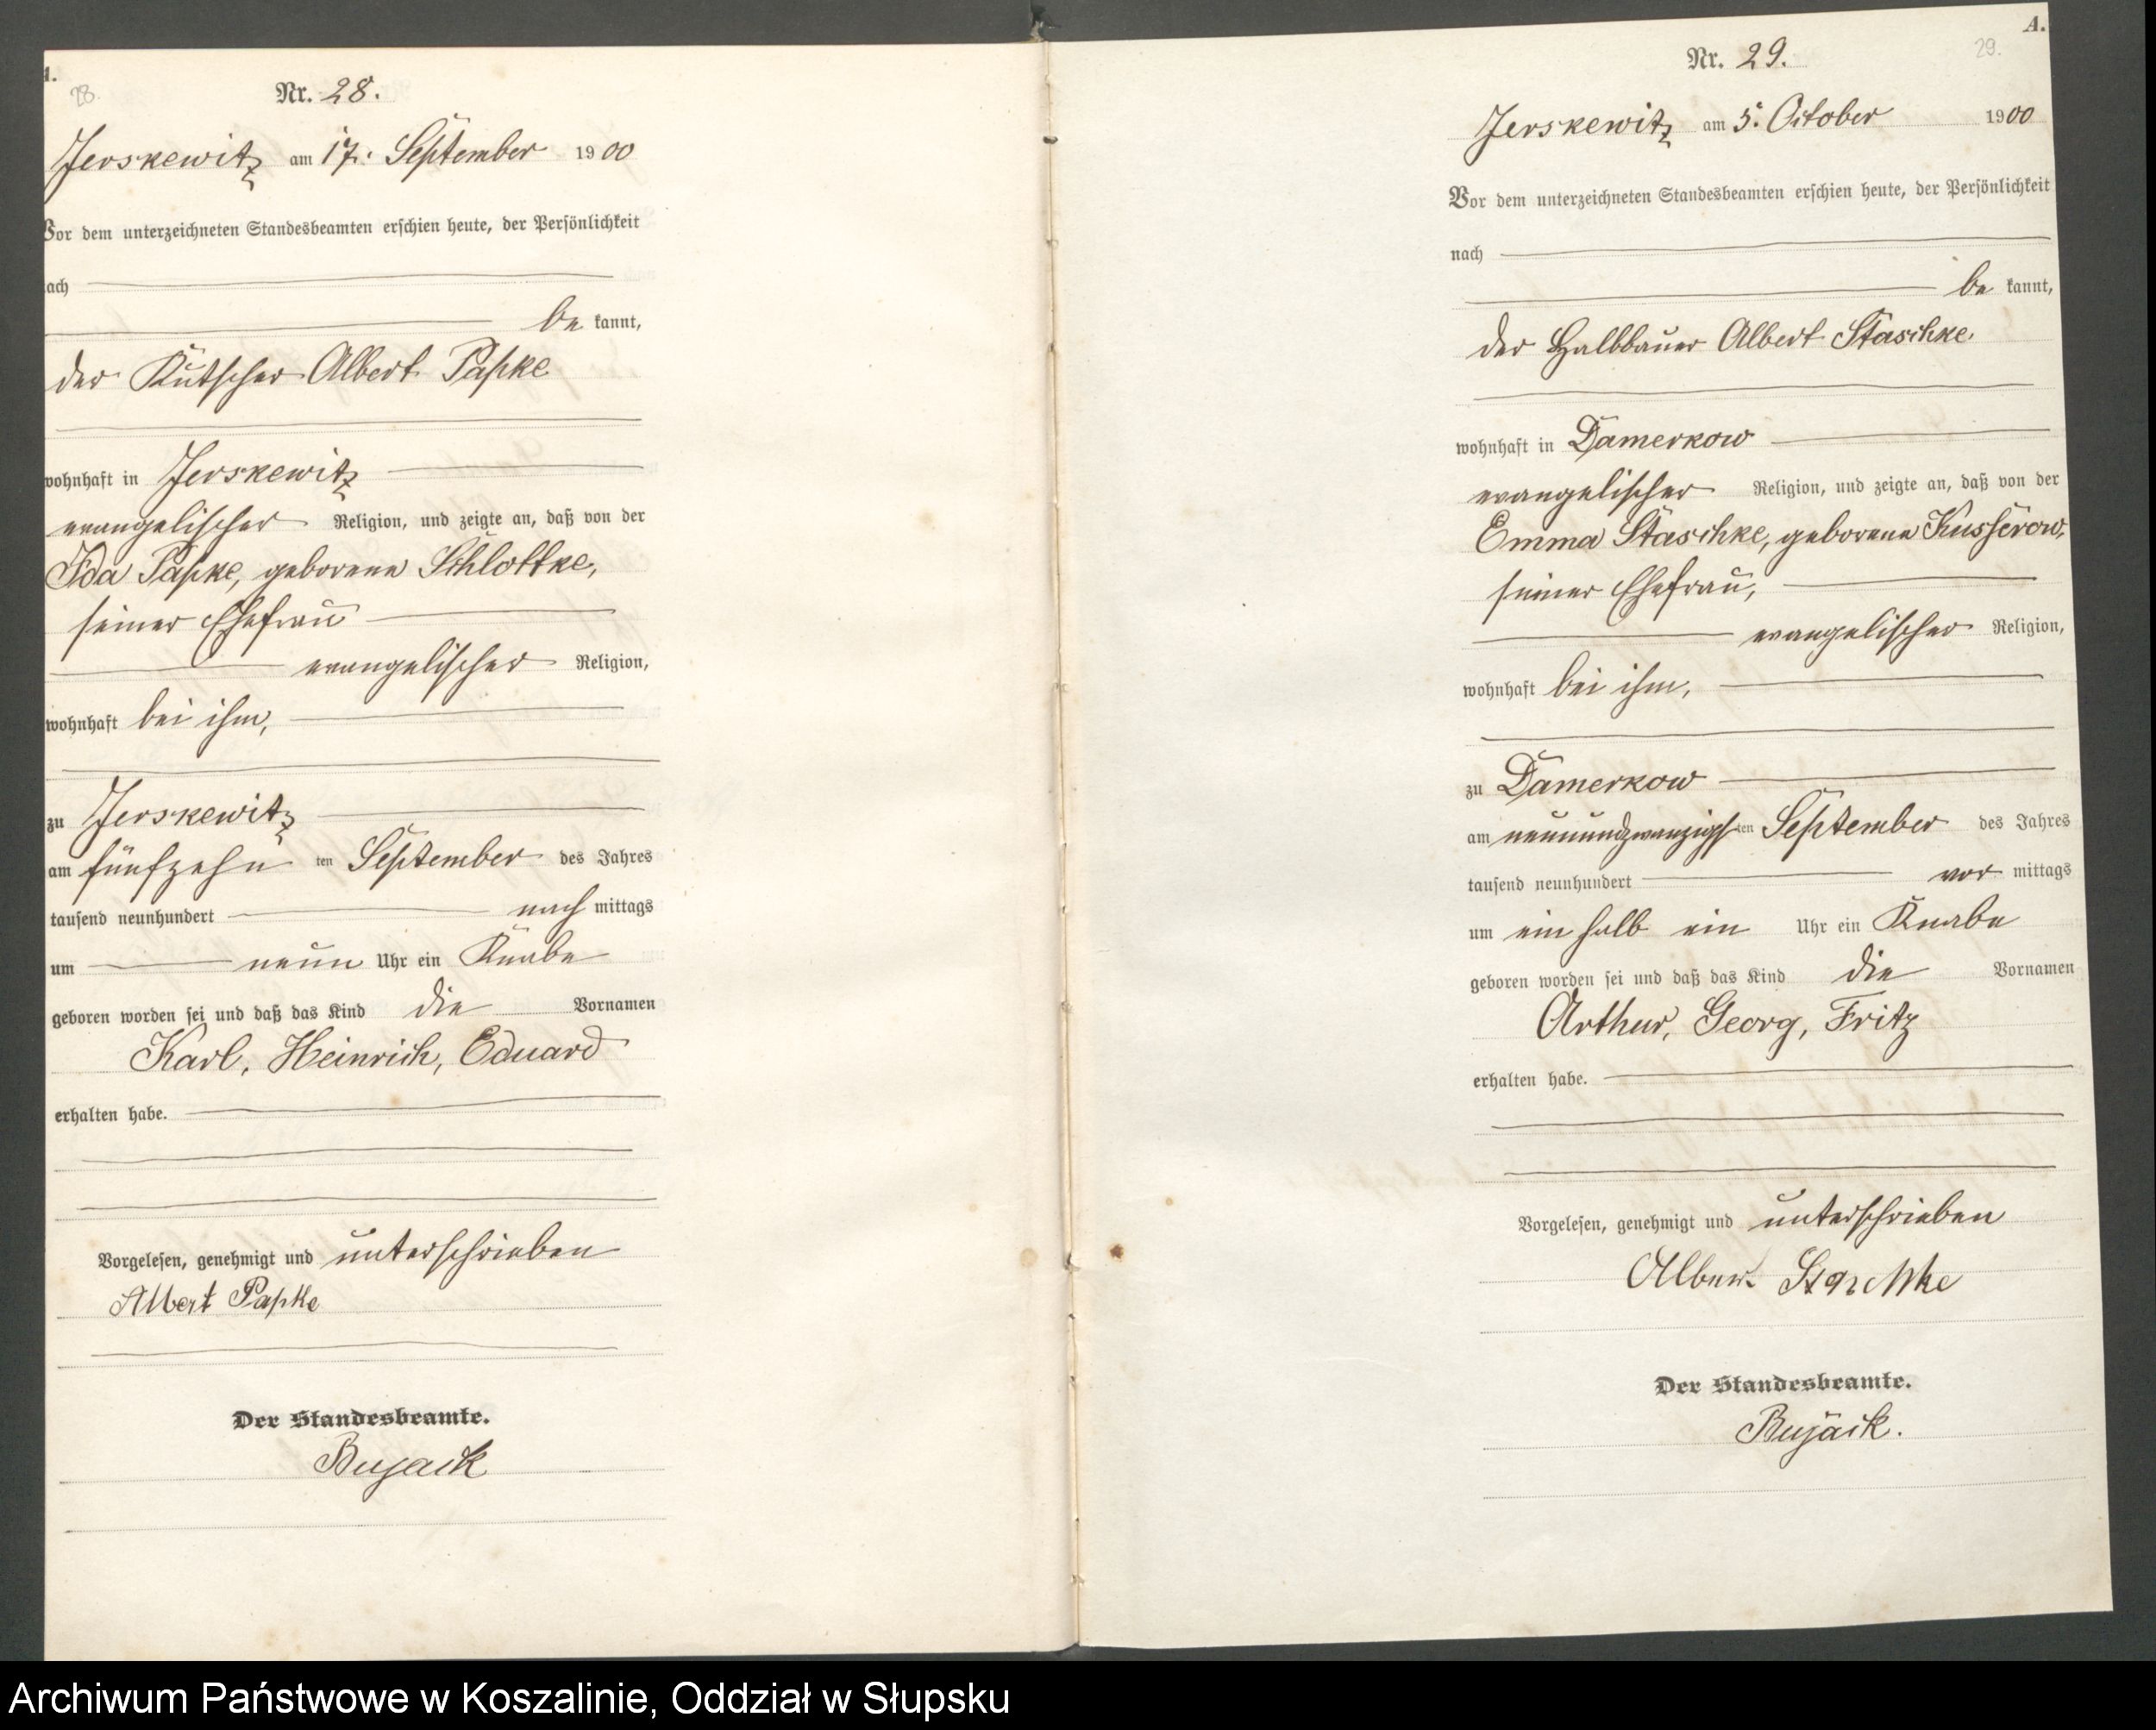 A.
28.
Nr. 28.
Jerskewitz am 17. September 1900
Vor dem unterzeichneten Standesbeamten erschien heute, der Persönlichkeit
nach
be kannt,
der Kutscher Albert Papke
wohnhaft in Jerskewitz
evangelischer Religion, und zeigte an, daß von der
Ida Papke, geborene Schlottke,
seiner Ehefrau
evangelischer Religion,
wohnhaft bei ihm,
zu Jerskewitz
am fünfzehn ten September des Jahres
tausend neunhundert nach mittags
um neun Uhr ein Knabe
geboren worden sei und daß das Kind die Vornamen
Karl, Heinrich, Eduard
erhalten habe.
Vorgelesen, genehmigt und unterschrieben
Albert Papke
Der Standesbeamte.
Bujack
A.
29.
Nr. 29.
Jerskewitz am 5. October 1900
Vor dem unterzeichneten Standesbeamten erschien heute, der Persönlichkeit
nach
be kannt,
der Halbbauer Albert Staschke
wohnhaft in Damerkow
evangelischer Religion, und zeigte an, daß von der
Emma Staschke, geborene Kusserow,
seiner Ehefrau,
evangelischer Religion,
wohnhaft bei ihm,
zu Damerkow
am neunundzwanzigsten September des Jahres
tausend neunhundert vor mittags
um ein halb ein Uhr ein Knabe
geboren worden sei und daß das Kind die Vornamen
Arthur, Georg, Fritz
erhalten habe.
Vorgelesen, genehmigt und unterschrieben
Albert Staschke
Der Standesbeamte.
Bujack.
Archiwum Państwowe w Koszalinie, Oddział w Słupsku